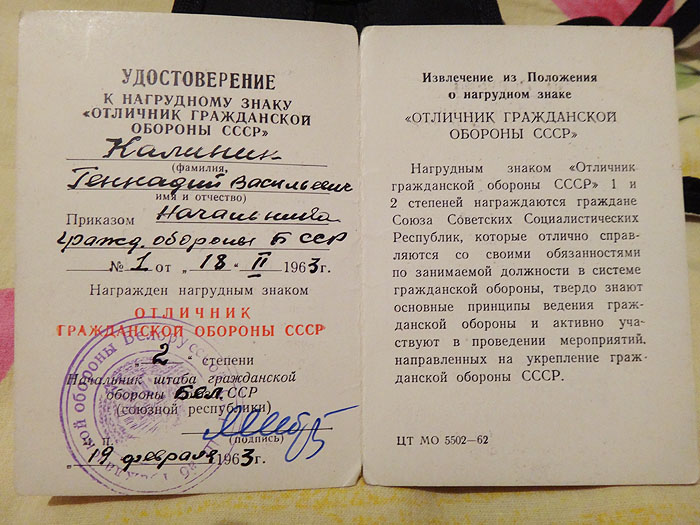 УДОСТОВЕРЕНИЕ
К НАГРУДНОМУ ЗНАКУ
«ОТЛИЧНИК ГРАЖДАНСКОЙ
ОБОРОНЫ СССР»
Калиник
(фамилия,
Геннадий Васильевич
имя и отчество)
Приказом Начальника
гражд. обороны БССР
№ 1 от „18“ II 1963г.
Награжден нагрудным знаком
ОТЛИЧНИК
ГРАЖДАНСКОЙ ОБОРОНЫ СССР
„2“ степени
Начальник штаба гражданской
обороны Бел. ССР
(союзной республики)
(подпись)
„19 февраля 1963г.
Извлечение из Положения
о нагрудном знаке
«ОТЛИЧНИК ГРАЖДАНСКОЙ
ОБОРОНЫ СССР»
Нагрудным знаком «Отличник
гражданской обороны СССР» 1 и
2 степеней награждаются граждане
Союза Советских Социалистических
Республик, которые отлично справ-
ляются со своими обязанностями
по занимаемой должности в системе
гражданской обороны, твердо знают
основные принципы ведения граж-
данской обороны и активно уча-
ствуют в проведении мероприятий,
направленных на укрепление граж-
данской обороны СССР.
ЦТ МО 5502—62